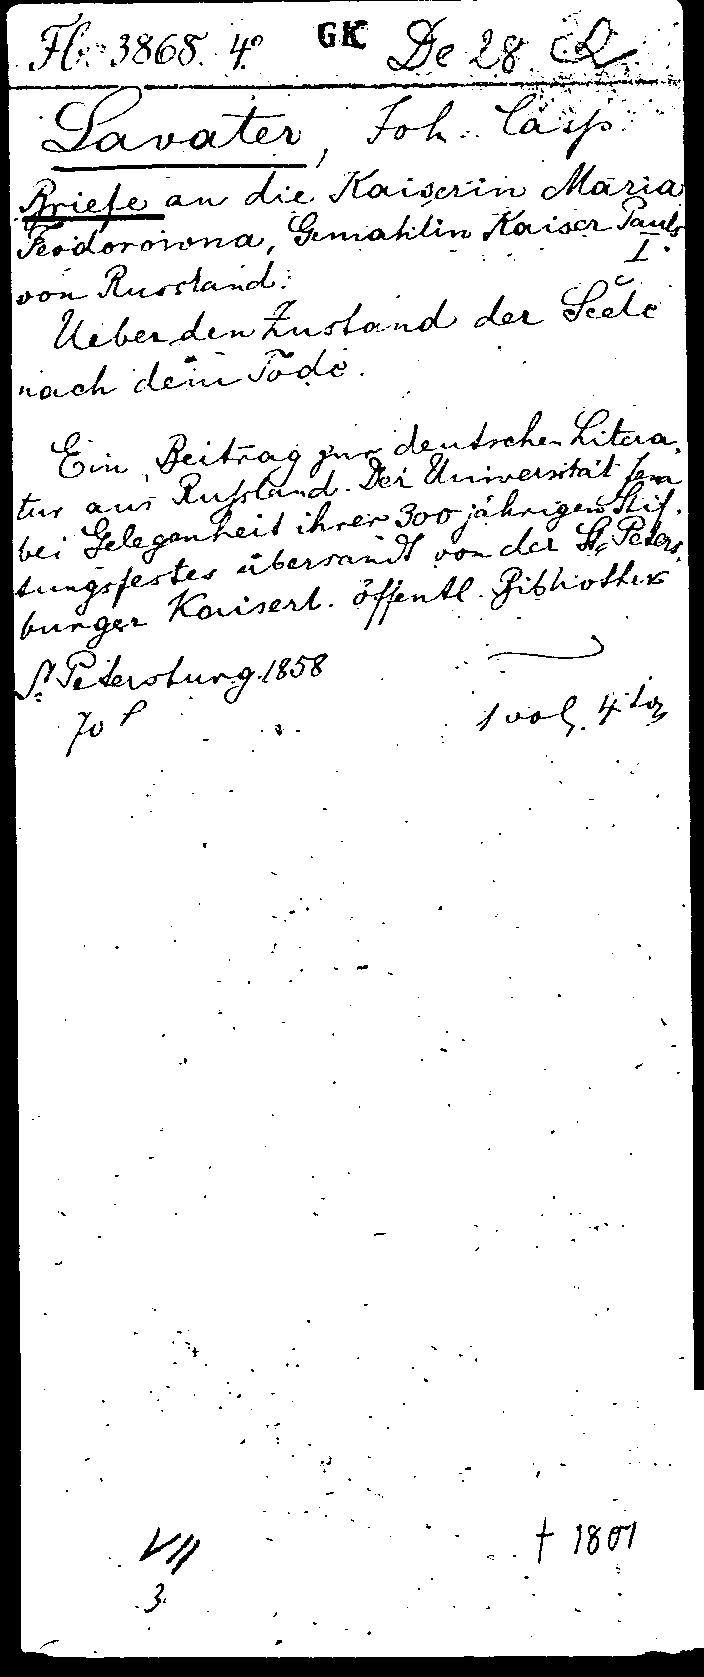 Fb. 3865. 4° GK De 28
Lavater, Joh. Casp.
Briefe an die Kaiserin Maria
Feodorowna, Gemahlin Kaiser Pauls
I.
von Russland:
Ueber den Zustand der Seele
nach dem Tode.
Ein Beitrag zur deutschen Litera-
tur aus Russland. Der Universität Jena
bei Gelegenheit ihrer 300 jährigen Stif-
tungsfestes übersandt von der St. Peters-
burger Kaiserl. öffentl. Bibliothek
St. Petersburg. 1858
70 S 1 vol. 4
VII
3.
† 1801